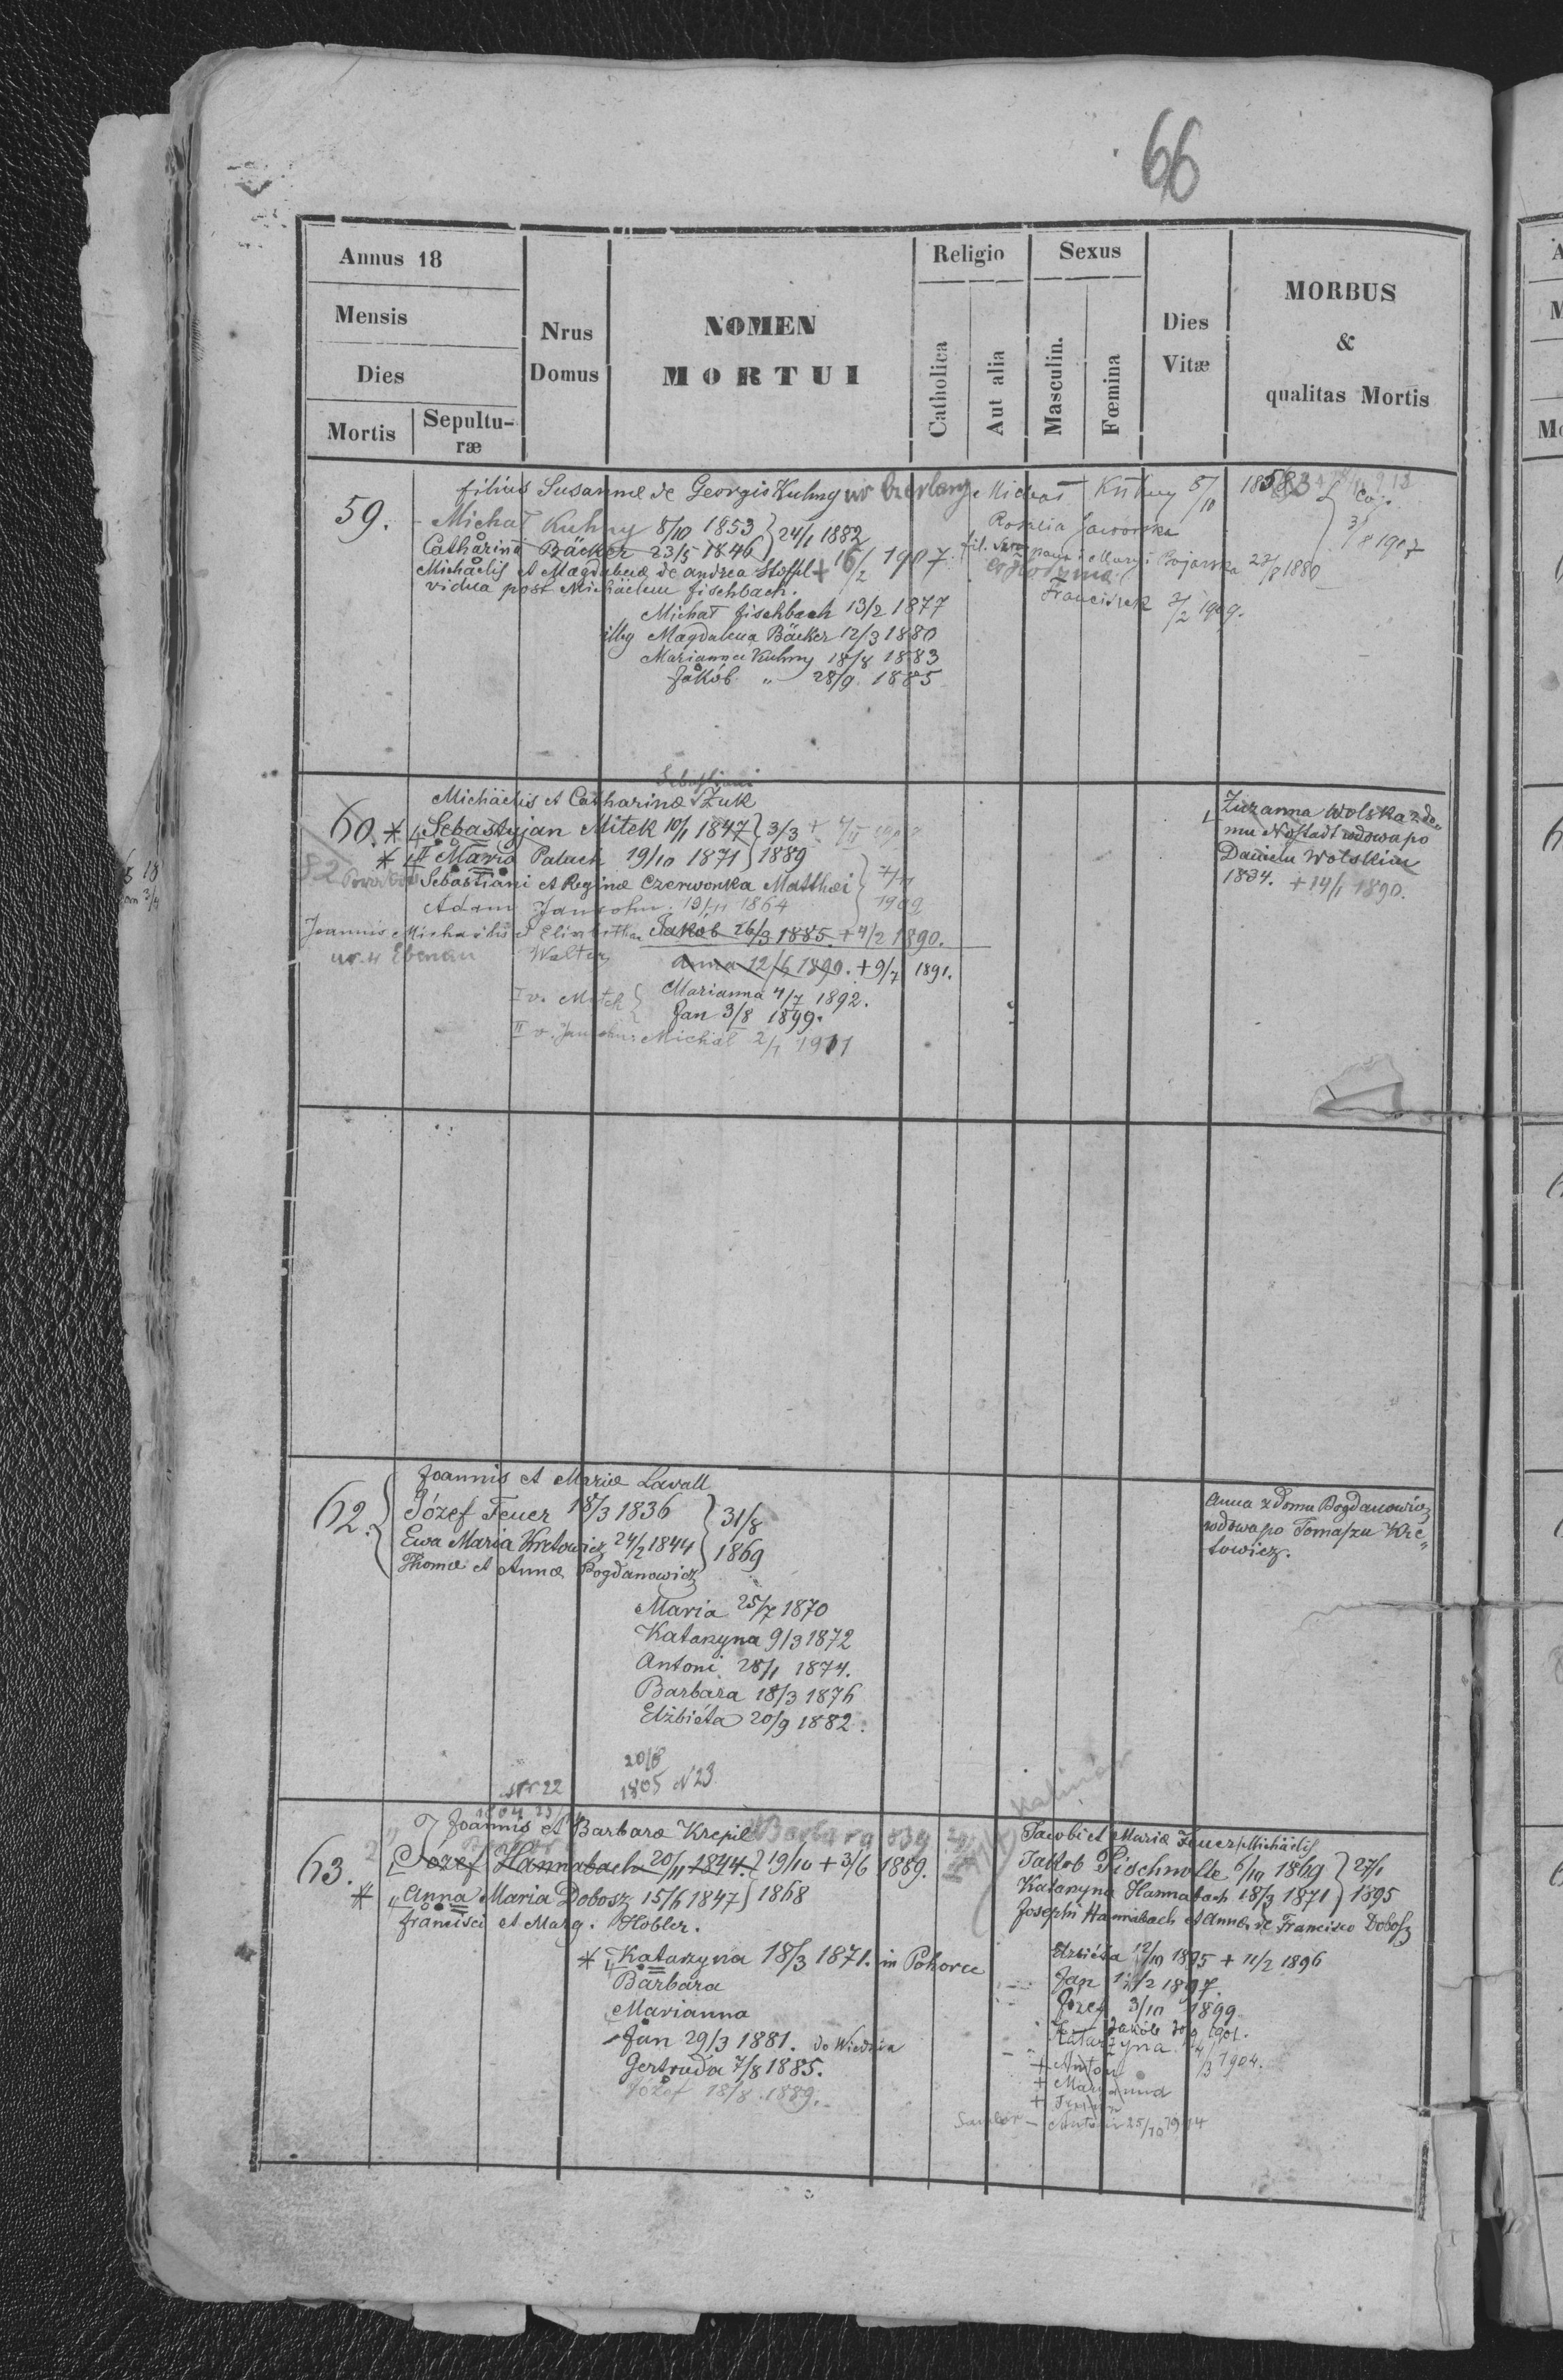 66
Annus 18
Mensis
Dies
Mortis
Sepulturæ
Nrus
Domus
NOMEN
MORTUI
Religio
Catholica
Aut alia
Sexus
Masculin.
Fœmina
Dies
Vitæ
MORBUS
&
qualitas Mortis
59.
filius Susannæ de Georgio Kuhny
Michał Kuhny 8/10 1853 } 24/1 1882
Catharina Bäcker 23/5 1846 + 16/2 1907.
Michaelis et Magdalenæ de Andrea Stoffel
vidua post Michäelem Fischbach.
Michał Fischbach 13/2 1877
illeg Magdalena Bäcker 12/3 1880
Marianna Kuhny 18/8 1883
Jakób " 28/9 1885
Michał Kuhny 8/10 1853
Rosalia Jaworska
3/8 1907
23/8 1880
Franciszek 2/2 1909.
Sebastiani
Michäelis et Catharinæ Żuk
60. * Sebastyjan Mitek 10/1 1847 } 3/3
* Maria Palach 19/10 1871 } 1889
Sebastiani et Reginæ Czerwonka Matthæi
Adam Jansohn 19/11 1864
1902
Joannis Michaëlis et Elisabethae Walter
ur. w Ebenau
Jakób 26/3 1885 + 4/2 1890.
Anna 12/6 1890. + 9/7 1891.
I v. Mitek { Marianna 4/7 1892.
Jan 3/8 1899.
II v. Jansohn: Michał 2/1 1911
Zuzanna Wolska z do-
mu Nostadt wdowa po
Danielu Wolskim
1834. + 14/1 1890.
Joannis et Mariæ Lavall
62. Józef Feuer 18/3 1836 } 31/8
Ewa Maria Kretowicz 24/2 1844 } 1869
Thomæ et Annæ Bogdanowicz
Maria 25/7 1870
Katarzyna 9/3 1872
Antoni 28/1 1874.
Barbara 18/3 1876
Elżbiéta 20/9 1882.
Anna z domu Bogdanowicz
wdowa po Tomaszu Kre-
towicz.
Nr 22
20/8
1805 N 23
Joannis et Barbaræ Krepil
63. Józef Hannabach 20/11 1844. } 19/10 + 3/6 1889.
* Anna Maria Dobosz 15/6 1847 } 1868
Francisci et Marg. Hobler.
* Katarzyna 18/3 1871. in Pohorce
Barbara
Marianna
Jan 29/3 1881. do Wiednia
Gertruda 7/8 1885.
Józef 18/8 1889.
Jacobi et Mariæ Feuer Michäelis
Jakób Pischnolle 6/10 1869 } 27/1
Katarzyna Hannabach 18/3 1871 } 1895
Josephi Hannabach et Annæ de Francisco Dobosz
Elżbiéta 12/10 1895 + 11/2 1896
Jan 12/2 1897.
Józef 3/10 1899
Jakób 1901.
Katarzyna 1904.
+ Anton
+ Marianna
Antoni 25/10 1914